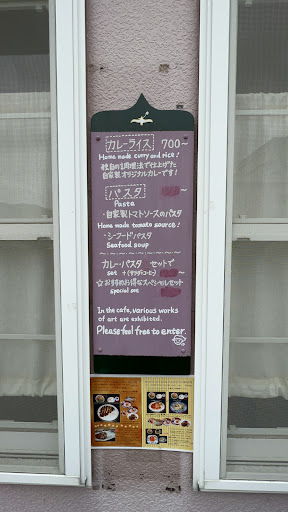 カレーライス 700~
Home made curry and rice!
独自の調理法で仕上げた
自家製オリジナルカレーです!
パスタ
Pasta
・自家製トマトソースのパスタ
Home made tomato source!
・シーフードパスタ
Seafood soup
カレー・パスタ セットで
set +(サラダ・コーヒー)
☆おすすめお得なスペシャルセット
special set
In the cafe, various works
of art are exhibited.
Please feel free to enter.